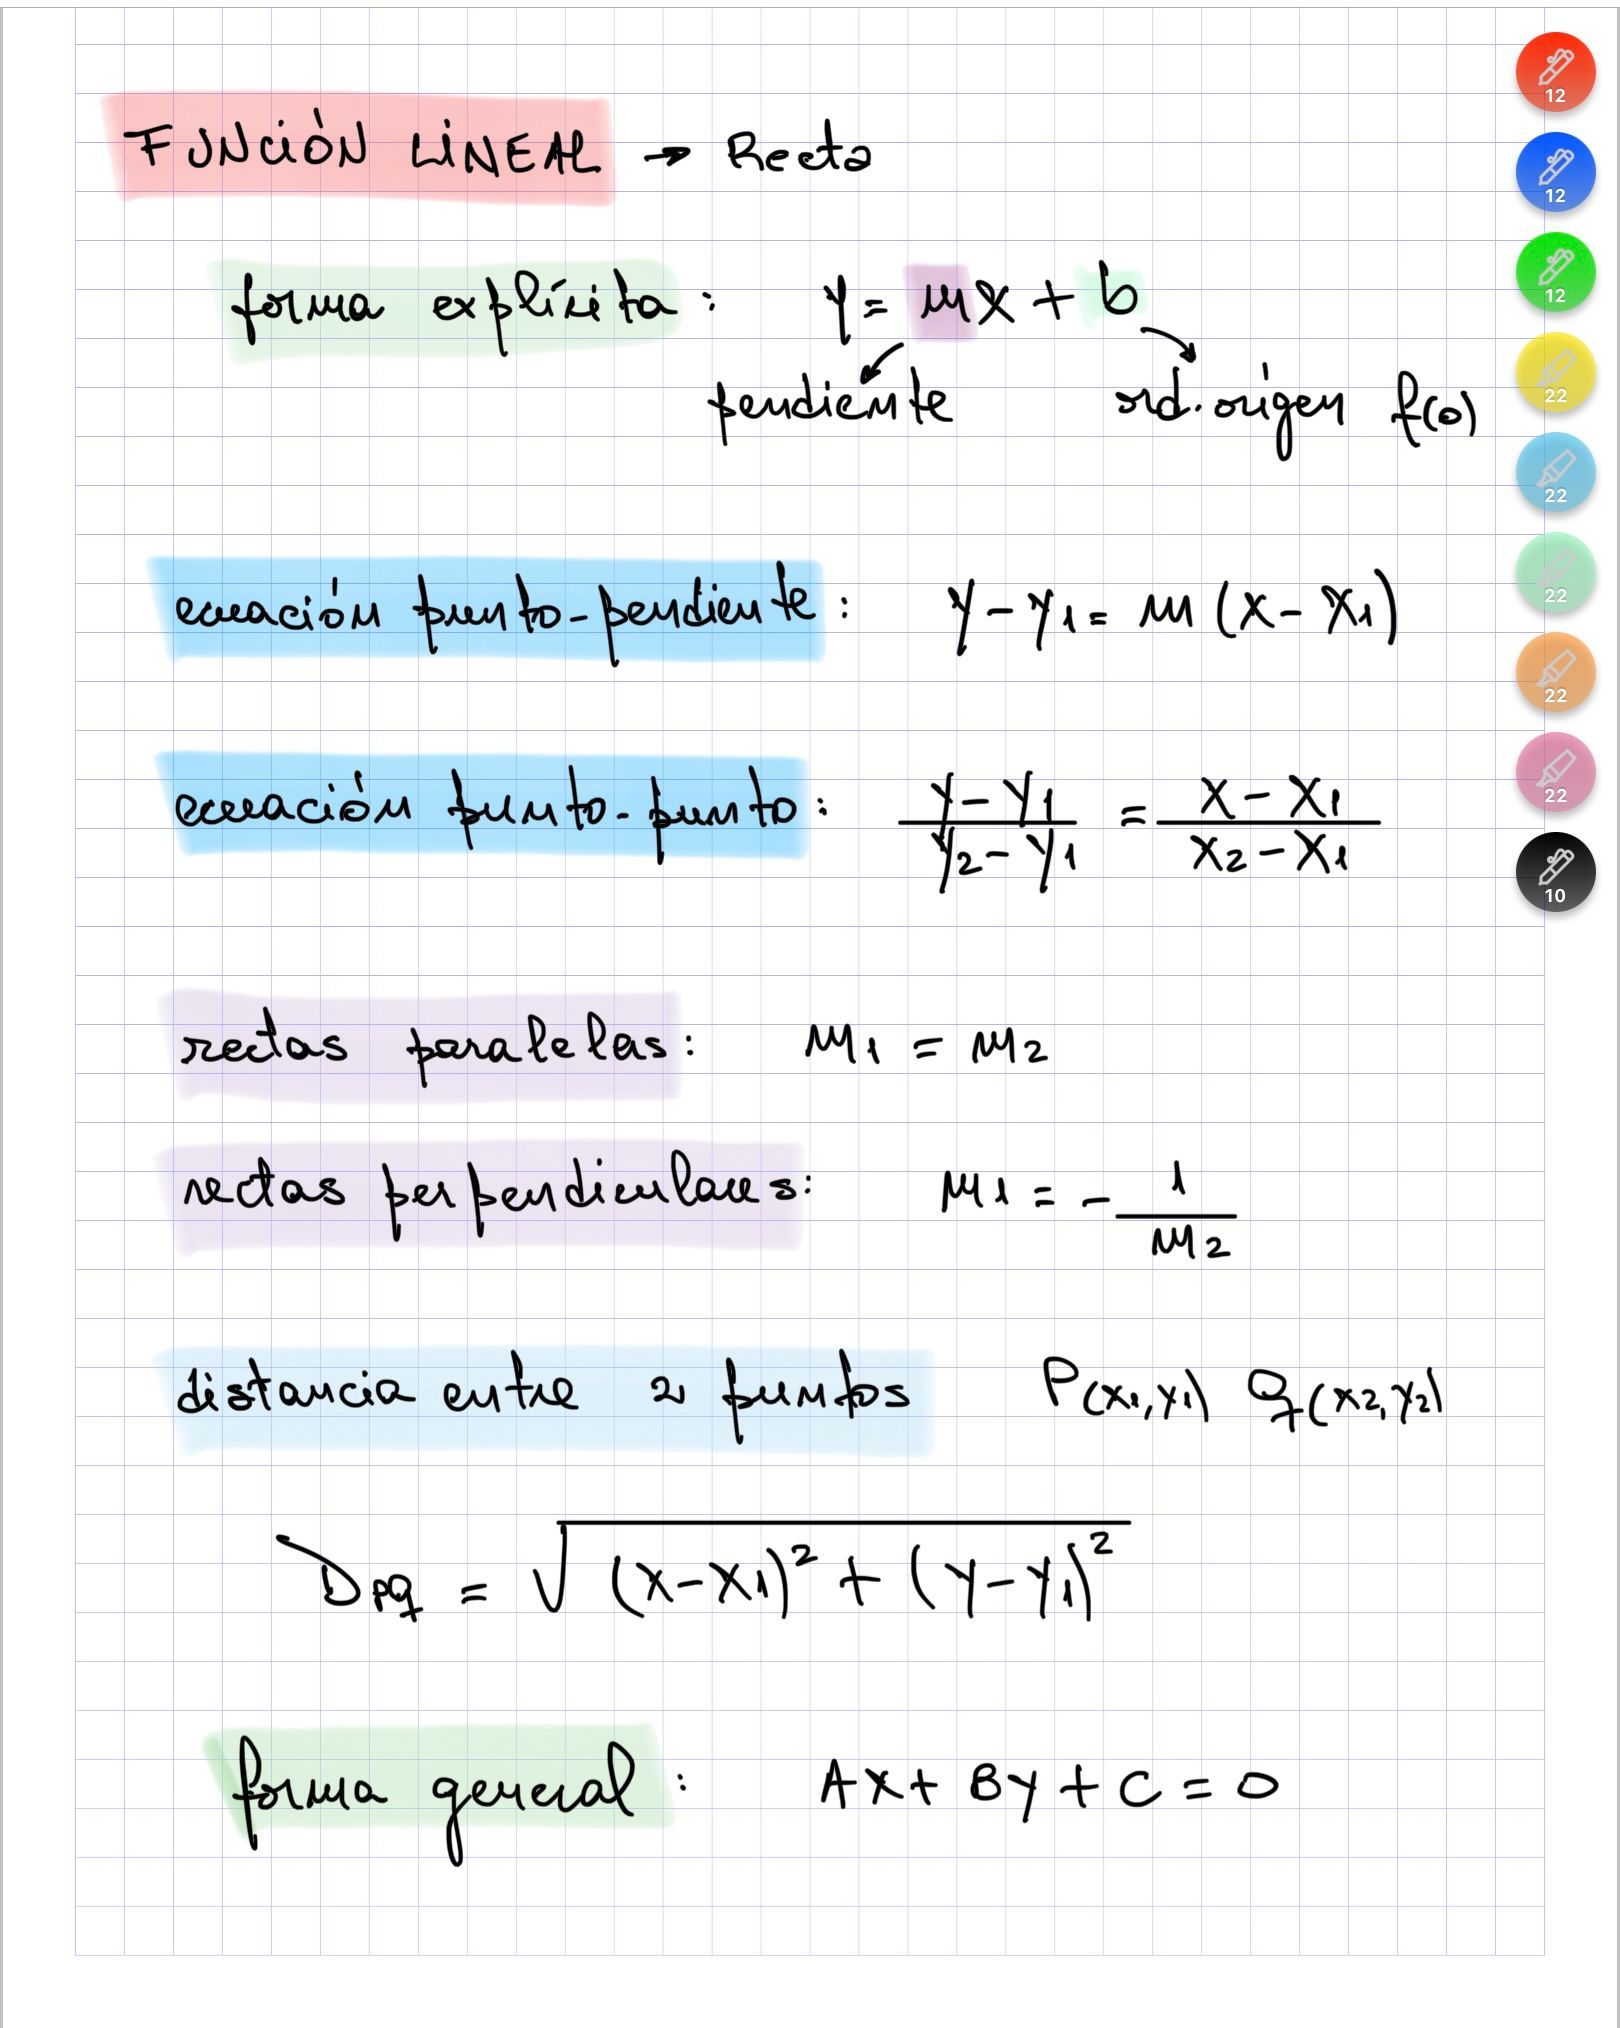 FUNCIÓN LINEAL → Recta
forma explícita: y = mx + b
pendiente ord. origen f(0)
ecuación punto-pendiente: y - y1 = m (x - x1)
ecuación punto-punto: (y - y1)/(y2 - y1) = (x - x1)/(x2 - x1)
rectas paralelas: m1 = m2
rectas perpendiculares: m1 = - 1/m2
distancia entre 2 puntos P(x1, y1) Q(x2, y2)
DPQ = √((x - x1)² + (y - y1)²)
forma general: Ax + By + C = 0
12
12
12
22
22
22
22
22
10